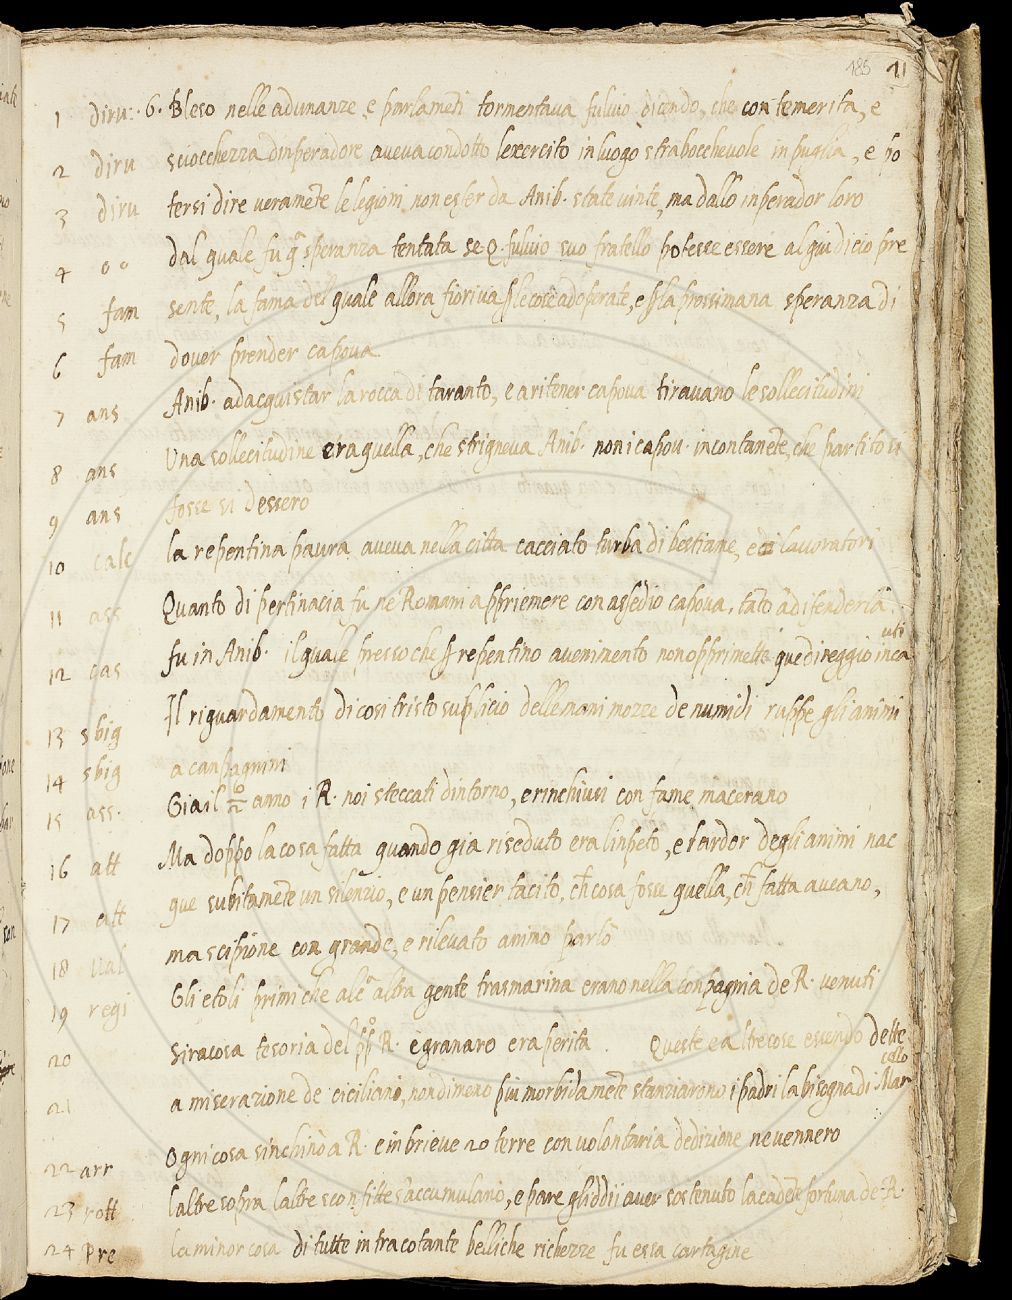 185 11
1 diru: 6. Bleso nelle adunanze, e parlamēti tormentava fulvio dicendo, che con temerita, e
2 diru sciocchezza dinperadore aveva condotto lexercito in luogo strabocchevole in puglia, e po
3 diru tersi dire veramēte le legioni non esser da Anib. state vinte, ma dallo inperador loro
4 o o dal quale fu speranza tentata se Q. fulvio suo fratello potesse essere al giudicio pre
5 fam sente, la fama del quale allora fioriva le cose adoperate, e la prossimana speranza di
6 fam dover prender capova
7 ans Anib. ad acquistar la rocca di taranto, e a ritener capova tiravano le sollecitudini
8 ans Una sollecitudine era quella, che strigneva Anib. non i capov. incontanēte, che partito si
9 ans fosse si dessero
10 calc la repentina paura aveva nella citta cacciato turba di bestiame, e di lavoratori
11 ass Quanto di pertinacia fu ne Romani a ppriemere con assedio capova, tāto a difenderla
uti
12 cas fu in Anib. il quale presso che repentino avenimento non opprimette que di reggio inca
13 sbig Il riguardamento di cosi tristo suplicio delle mani mozze de numidi ruppe gli animi
14 sbig a canpagnini
15 ass. Gia il anno i R. noi steccati dintorno, e rinchiusi con fame macerano
16 att Ma doppo la cosa fatta quando gia riseduto era linpeto, e lardor degli animi nac
17 att que subitamēte un silenzio, e un pensier tacito, ch̄ cosa fosse quella, ch̄ fatta aveano,
18 val ma scipione con grande, e rilevato animo parlò
19 regi Gli etoli primi che alc̄ altra gente trasmarina erano nella conpagnia de R. venuti
20 Siracosa tesoria del R. e granaro era perita. Queste e altre cose essendo dette
cello
21 a miserazione de ciciliani, nondimeno piu morbidamēte stanziarono i padri la bisogna di Mar
22 arr Ogni cosa sinchinò a R. e in brieve 20 terre con volontaria dedizione ne vennero
23 rott laltre sopra laltre sconfitte saccumulano, e pare gliddii aver sostenuto la cadēte fortuna de R.
24 Pre la minor cosa di tutte in tracotante belliche richezze fu essa cartagine